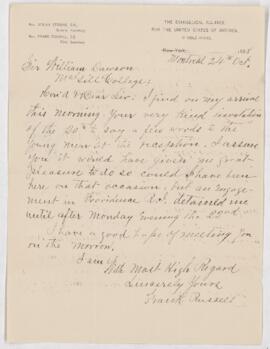 REV. JOSIAH STRONG, D.D.,
General Secretary.
REV. FRANK RUSSELL, D.D.
Field Secretary.
THE EVANGELICAL ALLIANCE
FOR THE UNITED STATES OF AMERICA.
New York,
Montreal 24th Oct. 1888
Sir William Dawson
McGill College:
Dear Sir: I find on my arrival
this morning your very kind invitation
of the 20th to say a few words to the
young men at the reception. I assure
you it would have given me great
pleasure to do so could I have been
here on that occasion, but an engage-
ment in Providence R.I. detained me
until after Monday evening the 22nd
I have a good hope of meeting you
on the morrow.
I am
With Most High Regard
Sincerely Yours
Frank Russell